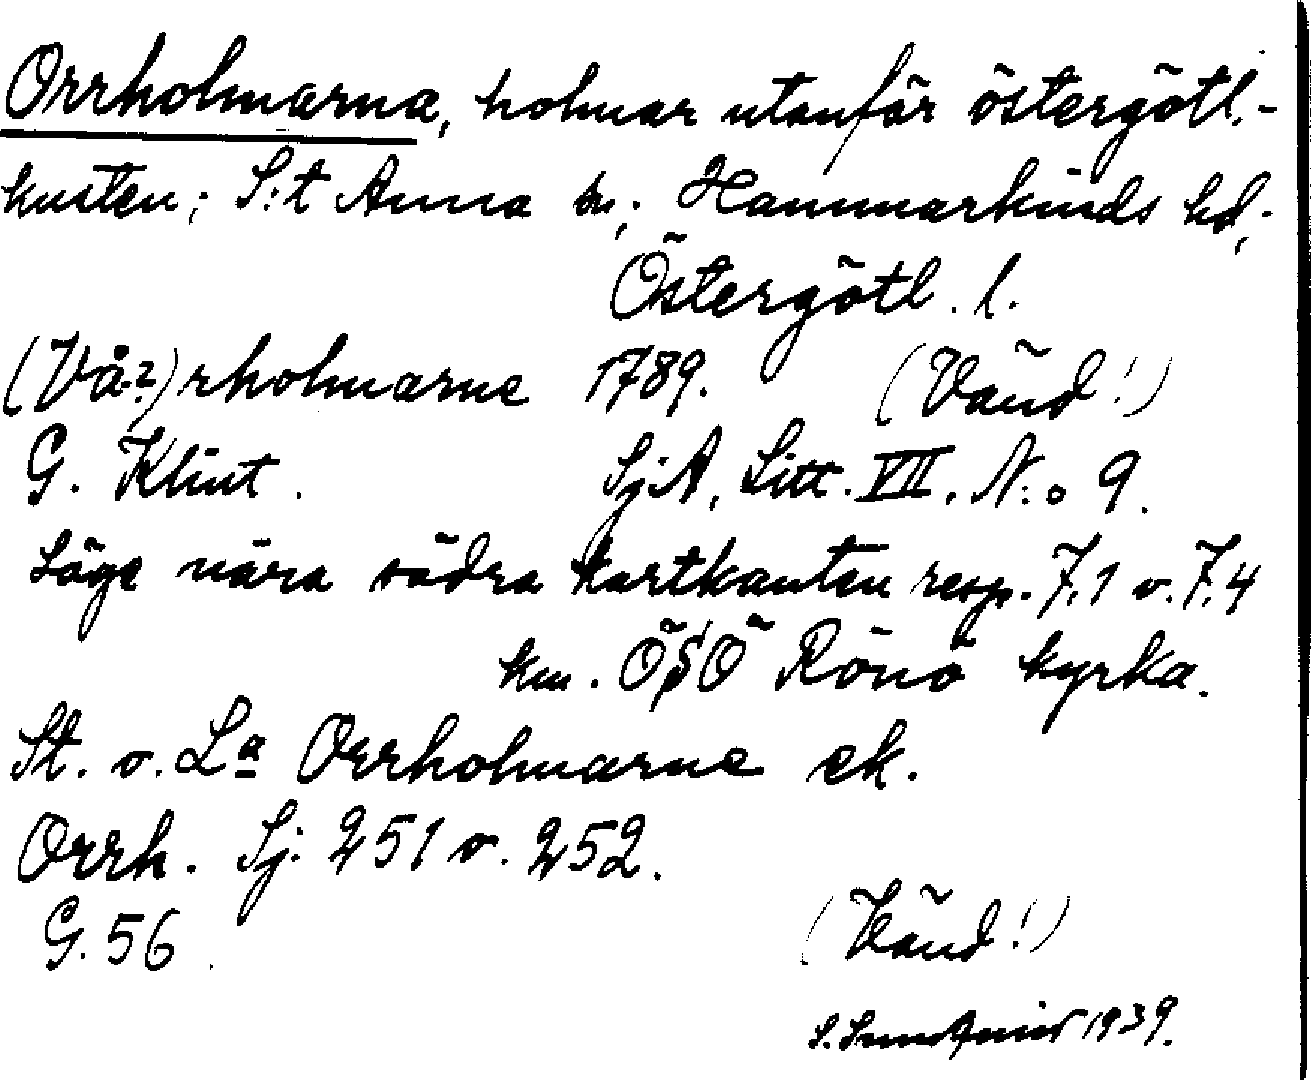 Orrholmarna, holmar utanför östergötl.-
kusten; S:t Anna sn; Hammarkinds hd;
Östergötl. l.
(Vå-?)rholmarne 1789. (Vänd!)
G. Klint. SjA, Litt. VII, N:o 9.
Läge nära södra kartkanten resp. 7,1 o. 7,4
km. ÖSÖ Rönö kyrka.
St. o. La Orrholmarne ek.
Orrh. Sj. 251 o. 252.
G. 56. (Vänd!)
S. 1939.